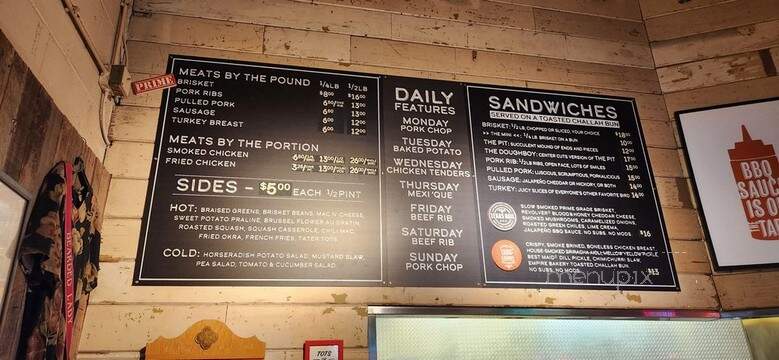 PRIME
MEATS BY THE POUND 1/4LB 1/2LB
BRISKET $8⁰⁰ $16⁰⁰
PORK RIBS 6⁵⁰ 13⁰⁰
PULLED PORK 6⁵⁰ 13⁰⁰
SAUSAGE 6⁰⁰ 12⁰⁰
TURKEY BREAST 6⁰⁰ 12⁰⁰
MEATS BY THE PORTION
SMOKED CHICKEN 6⁵⁰ 13⁰⁰ 26⁰⁰
FRIED CHICKEN 13⁰⁰ 26⁰⁰
SIDES - $5.00 EACH 1/2 PINT
HOT: BRAISED GREENS, BRISKET BEANS, MAC N CHEESE,
SWEET POTATO PRALINE, BRUSSEL FLOWER AU GRATIN,
ROASTED SQUASH, SQUASH CASSEROLE, CHILI MAC,
FRIED OKRA, FRENCH FRIES, TATER TOTS
COLD: HORSERADISH POTATO SALAD, MUSTARD SLAW,
PEA SALAD, TOMATO & CUCUMBER SALAD
DAILY
FEATURES
MONDAY
PORK CHOP
TUESDAY
BAKED POTATO
WEDNESDAY
CHICKEN TENDERS
THURSDAY
MEXI'QUE
FRIDAY
BEEF RIB
SATURDAY
BEEF RIB
SUNDAY
PORK CHOP
SANDWICHES
SERVED ON A TOASTED CHALLAH BUN
BRISKET: 1/2 LB, CHOPPED OR SLICED, YOUR CHOICE $18⁰⁰
>> THE MINI << : 1/4 LB BRISKET ON A BUN 10⁰⁰
THE PIT: SUCCULENT MOUND OF ENDS AND PIECES 12⁰⁰
THE DOUGHBOY: CENTER CUTS VERSION OF THE PIT 17⁵⁰
PORK RIB: 1/2 LB RIBS, OPEN FACE, LOTS OF SMILES 15⁰⁰
PULLED PORK: LUSCIOUS, SCRUMPTIOUS, PORKALICIOUS 15⁰⁰
SAUSAGE: JALAPEÑO CHEDDAR OR HICKORY, OR BOTH 14⁰⁰
TURKEY: JUICY SLICES OF EVERYONE'S OTHER FAVORITE BIRD 14⁰⁰
SLOW SMOKED PRIME GRADE BRISKET,
REVOLVER BLOOD & HONEY CHEDDAR CHEESE,
SMOKED MUSHROOMS, CARAMELIZED ONIONS,
ROASTED GREEN CHILES, LIME CREMA,
JALAPEÑO BBQ SAUCE. NO SUBS. NO MODS. $16
CRISPY, SMOKE BRINED, BONELESS CHICKEN BREAST
BEST MAID DILL PICKLE, CHIMICHURRI SLAW,
EMPIRE BAKERY TOASTED CHALLAH BUN.
NO SUBS, NO MODS. $13
menupix
BBQ
SAUCE
BEARDED LADY
TOTS